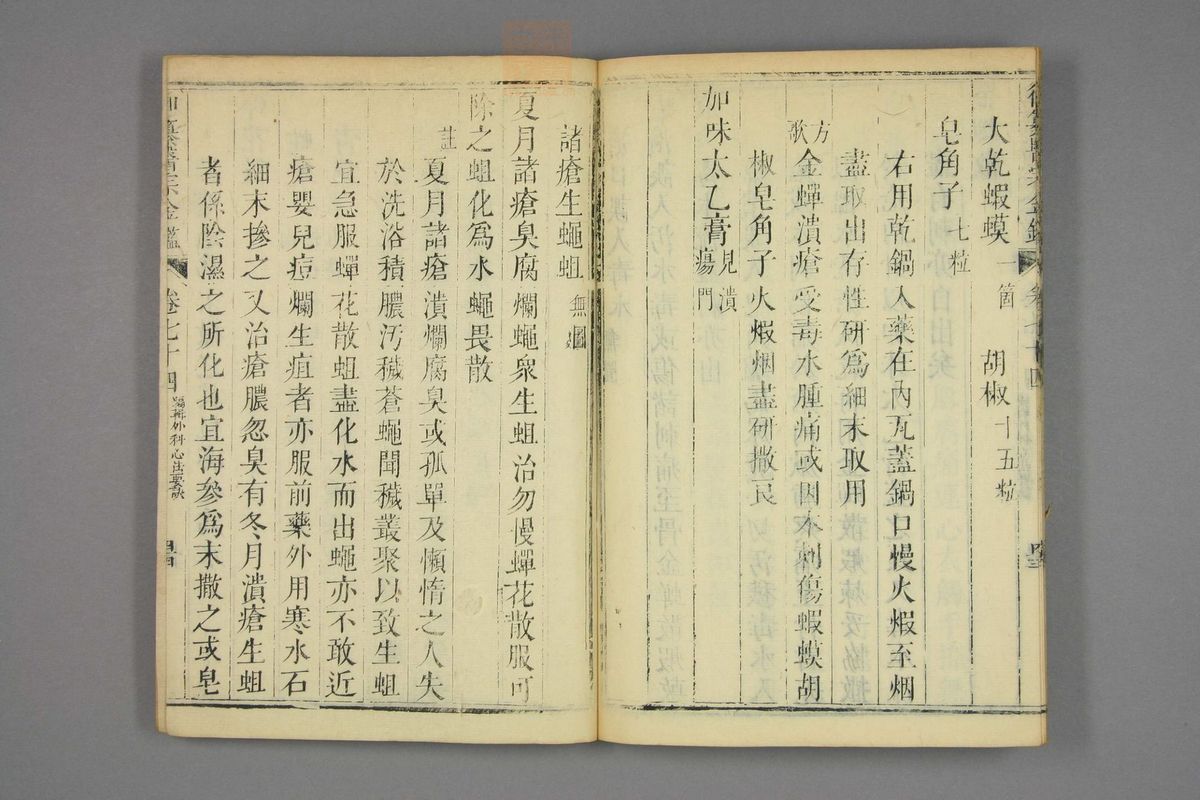 大乾蝦蟆一箇　胡椒十五粒
皂角子七粒
右用乾鍋入藥在內瓦蓋鍋口慢火煆至烟
盡取出存性研爲細末取用
方歌金蟬潰瘡受毒水腫痛或因木刺傷蝦蟆胡
椒皂角子火煆烟盡研撒良
加味太乙膏見潰瘍門
諸瘡生蠅蛆無圖
夏月諸瘡臭腐爛蠅衆生蛆治勿慢蟬花散服可
除之蛆化爲水蠅畏散
註夏月諸瘡潰爛腐臭或孤單及懶惰之人失
於洗浴積膿汚穢蒼蠅聞穢叢聚以致生蛆
宜急服蟬花散蛆盡化水而出蠅亦不敢近
瘡嬰兒痘爛生疽者亦服前藥外用寒水石
細末摻之又治瘡膿忽臭有冬月潰瘡生蛆
者係陰濕之所化也宜海參爲末撒之或皂
卷七十四　編輯外科心法要訣